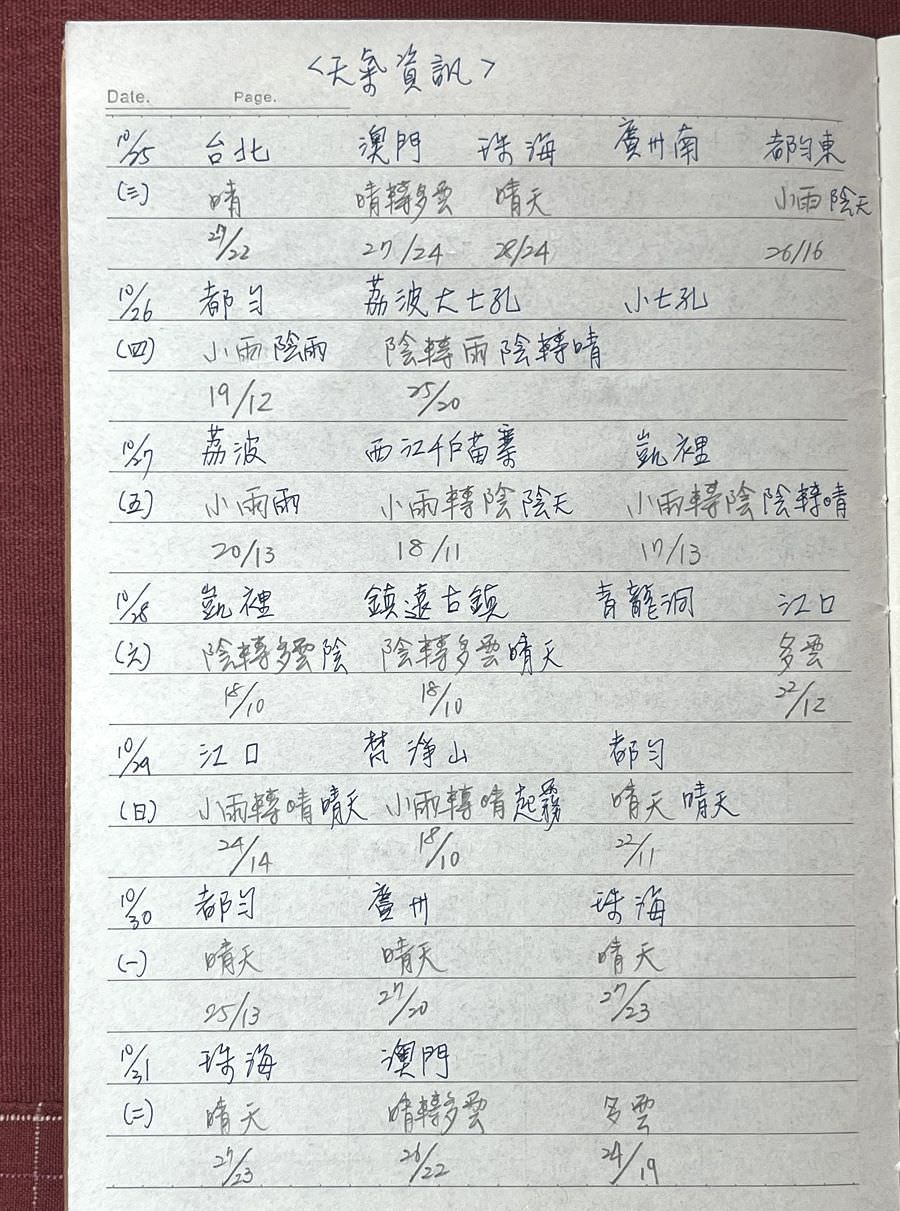 <天氣資訊>
Date. Page.
10/25 台北 澳門 珠海 廣州南 都勻東
(三) 晴 晴轉多雲 晴天 小雨 陰天
27/22 27/24 28/24 26/16
10/26 都勻 荔波大七孔 小七孔
(四) 小雨 陰雨 陰轉雨 陰轉晴
19/12 25/20
10/27 荔波 西江千戶苗寨 凱裡
(五) 小雨雨 小雨轉陰 陰天 小雨轉陰 陰轉晴
20/13 18/11 17/13
10/28 凱裡 鎮遠古鎮 青龍洞 江口
(六) 陰轉多雲 陰 陰轉多雲 晴天 多雲
18/10 18/10 22/12
10/29 江口 梵淨山 都勻
(日) 小雨轉晴 晴天 小雨轉晴 起霧 晴天 晴天
24/14 18/10 22/11
10/30 都勻 廣州 珠海
(一) 晴天 晴天 晴天
25/13 27/20 27/23
10/31 珠海 澳門
(二) 晴天 晴轉多雲 多雲
27/23 26/22 24/19